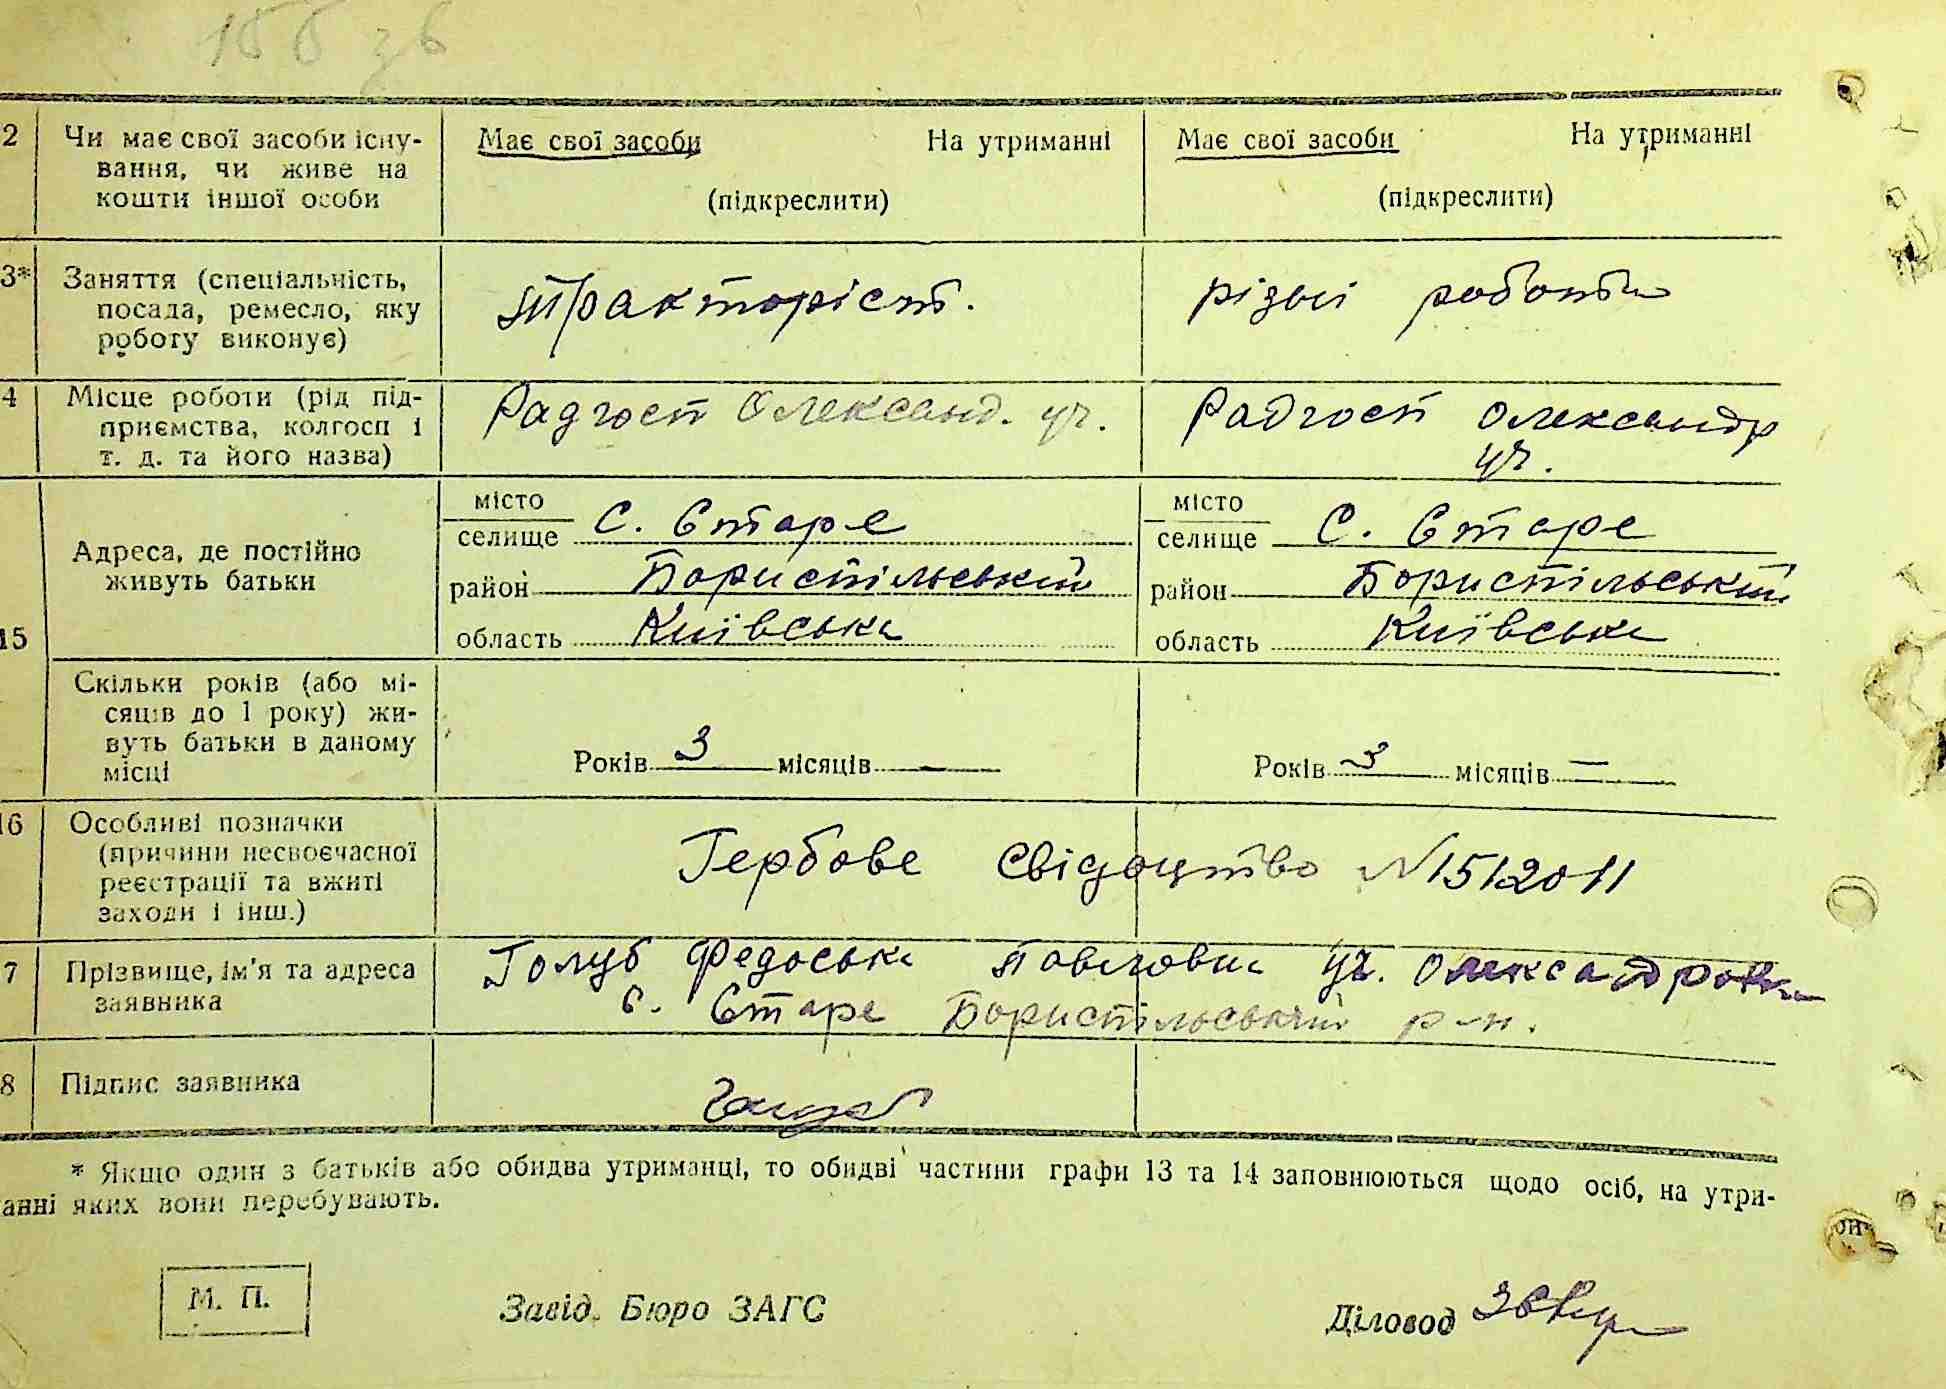 2 Чи має свої засоби існу-
вання, чи живе на
кошти іншої особи
Має свої засоби На утриманні
(підкреслити)
Має свої засоби На утриманні
(підкреслити)
3* Заняття (спеціальність,
посада, ремесло, яку
роботу виконує)
тракторіст.
різні роботи
4 Місце роботи (рід під-
приємства, колгосп і
т. д. та його назва)
Радгосп Олександ. уч.
Радгосп Олександр
уч.
15
Адреса, де постійно
живуть батьки
місто
селище С. Старе
район Бориспільський
область Київська
місто
селище С. Старе
район Бориспільський
область Київська
Скільки років (або мі-
сяців до 1 року) жи-
вуть батьки в даному
місці
Років 3 місяців —
Років 3 місяців —
16 Особливі позначки
(причини несвоєчасної
реєстрації та вжиті
заходи і інш.)
Гербове свідоцтво N 1512011
7 Прізвище, ім'я та адреса
заявника
Голуб Федоська Павловна уч. Олександровка
с. Старе Бориспільський р-н.
8 Підпис заявника
* Якщо один з батьків або обидва утриманці, то обидві частини графи 13 та 14 заповнюються щодо осіб, на утри-
анні яких вони перебувають.
М. П.
Завід. Бюро ЗАГС
Діловод